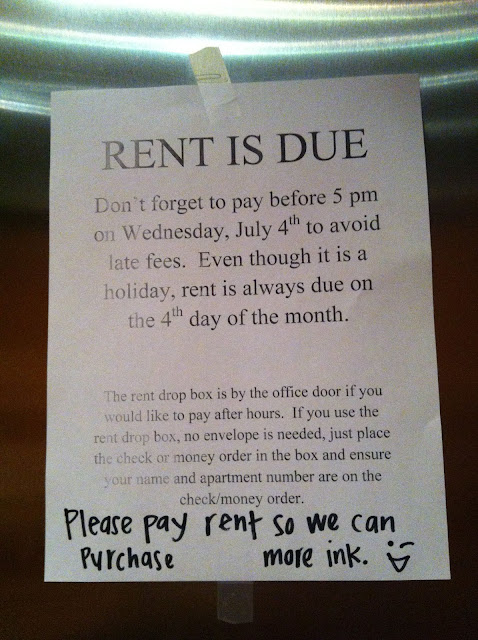 RENT IS DUE
Don't forget to pay before 5 pm
on Wednesday, July 4th to avoid
late fees. Even though it is a
holiday, rent is always due on
the 4th day of the month.
The rent drop box is by the office door if you
would like to pay after hours. If you use the
rent drop box, no envelope is needed, just place
the check or money order in the box and ensure
your name and apartment number are on the
check/money order.
Please pay rent so we can
purchase more ink.